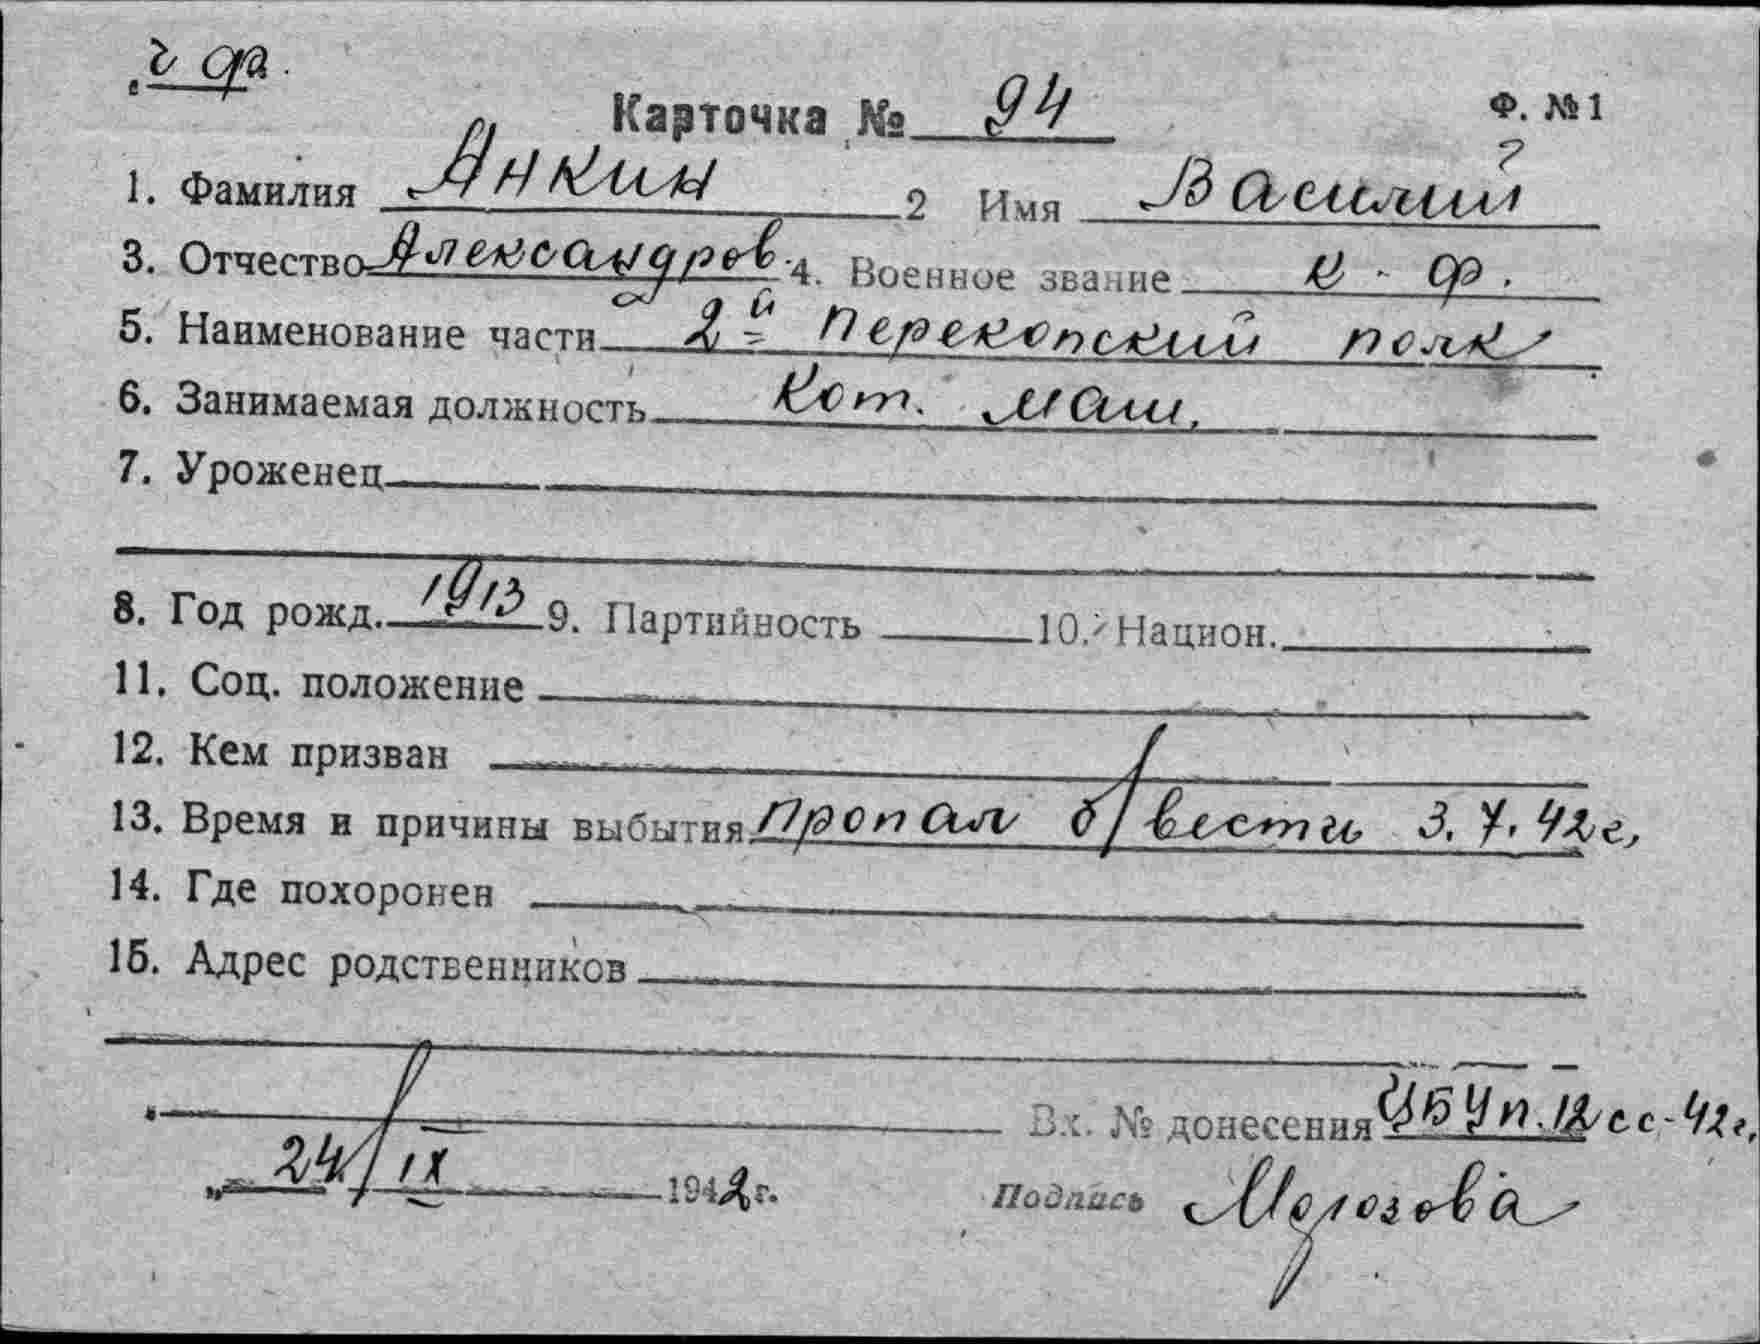 ч ф.
Карточка № 94 Ф. № 1
1. Фамилия Анкин 2 Имя Василий
3. Отчество Александров. 4. Военное звание к-ф.
5. Наименование части 2й Перекопский полк
6. Занимаемая должность Кот. маш.
7. Уроженец
8. Год рожд. 1913 9. Партийность 10. Национ.
11. Соц. положение
12. Кем призван
13. Время и причины выбытия Пропал б/вести 3.7.42г.
14. Где похоронен
15. Адрес родственников
Вх. № донесения ЦБУ п. 12сс-42г.
„ 24/IX 1942г. Подпись Морозова